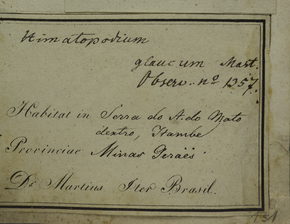 Himatopodium
glaucum Mart.
Observ. no. 1257.
Habitat in Serra do
dextro, Itambe
Provinciae Minas Geraës
Dr. Martius Iter Brasil.